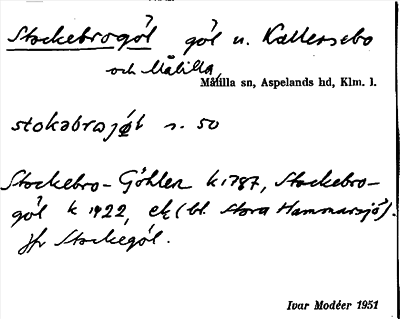 Stockebrogöl göl n. Kallersebo
och Målilla,
Målilla sn, Aspelands hd, Klm. l.
stokabrasjøl s. 50
Stockebro-Göhlen k 1787, Stockebro-
göl k 1922, ek (bl. Stora Hammarsjö).
jfr Stockegöl.
Ivar Modéer 1951